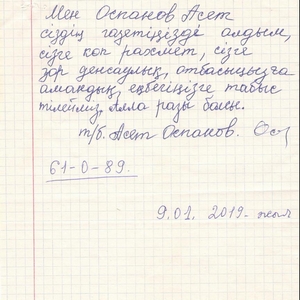 Мен Оспанов Асет
сіздің газетіңізді алдым,
сізге көп рахмет, сізге
зор денсаулық, отбасыңызға
амандық, еңбегіңізге табыс
тілейміз, Алла разы болсын.
т/б. Асет Оспанов.
61-0-89.
9.01.2019-жыл